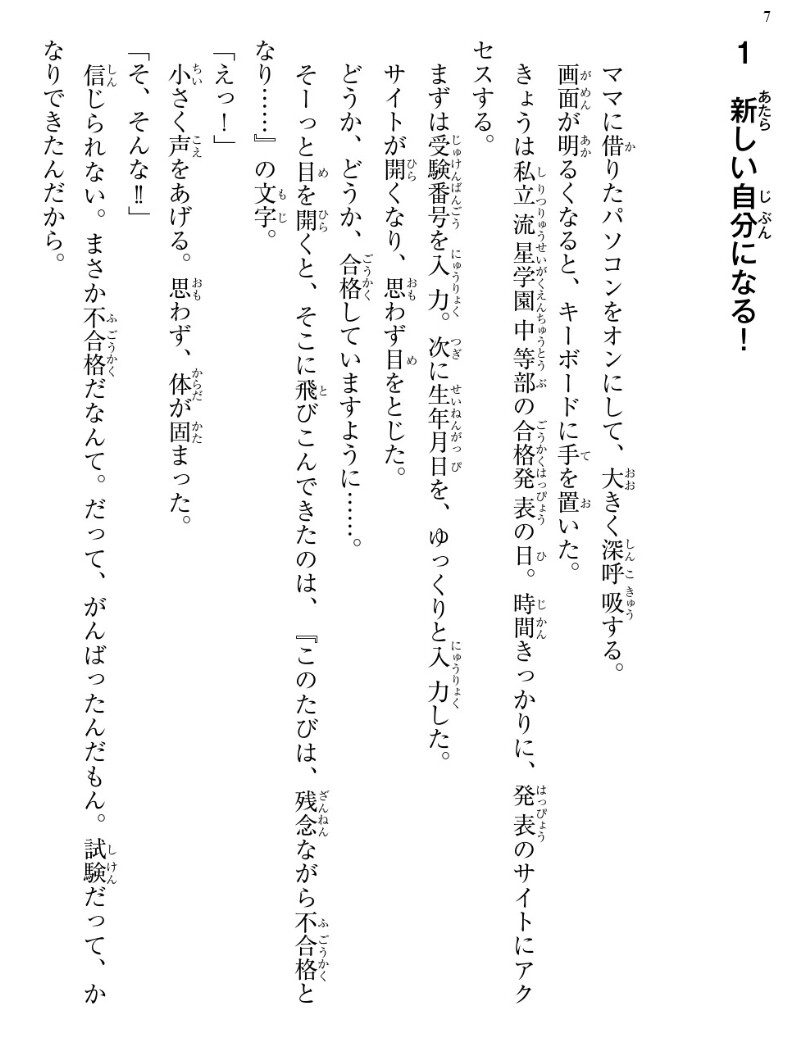 7
1 新しい自分になる！
ママに借りたパソコンをオンにして、大きく深呼吸する。
画面が明るくなると、キーボードに手を置いた。
きょうは私立流星学園中等部の合格発表の日。時間きっかりに、発表のサイトにアク
セスする。
まずは受験番号を入力。次に生年月日を、ゆっくりと入力した。
サイトが開くなり、思わず目をとじた。
どうか、どうか、合格していますように……。
そーっと目を開くと、そこに飛びこんできたのは、『このたびは、残念ながら不合格と
なり……』の文字。
「えっ！」
小さく声をあげる。思わず、体が固まった。
「そ、そんな‼」
信じられない。まさか不合格だなんて。だって、がんばったんだもん。試験だって、か
なりできたんだから。